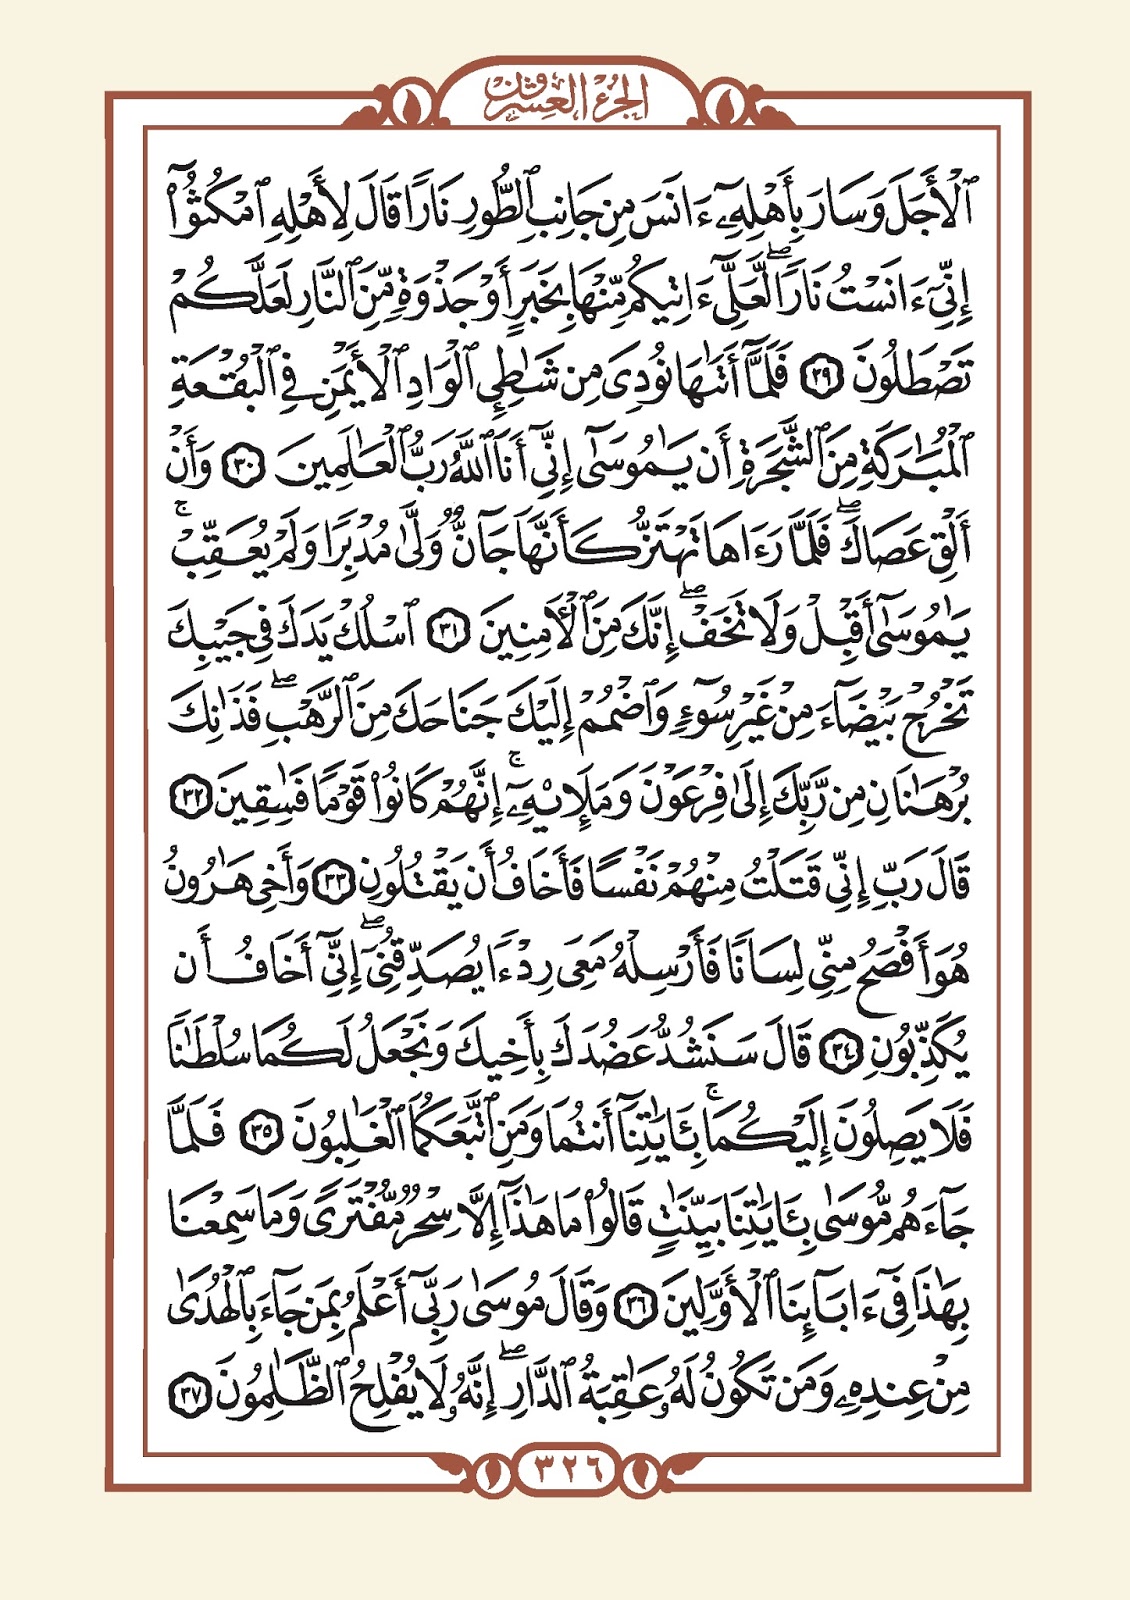 الجزء العشرون
ٱلْأَجَلَ وَسَارَ بِأَهْلِهِۦٓ ءَانَسَ مِن جَانِبِ ٱلطُّورِ نَارًا قَالَ لِأَهْلِهِ ٱمْكُثُوٓا۟
إِنِّىٓ ءَانَسْتُ نَارًا ۖ لَّعَلِّىٓ ءَاتِيكُم مِّنْهَا بِخَبَرٍ أَوْ جَذْوَةٍ مِّنَ ٱلنَّارِ لَعَلَّكُمْ
تَصْطَلُونَ ٢٩ فَلَمَّآ أَتَىٰهَا نُودِىَ مِن شَـٰطِئِ ٱلْوَادِ ٱلْأَيْمَنِ فِى ٱلْبُقْعَةِ
ٱلْمُبَـٰرَكَةِ مِنَ ٱلشَّجَرَةِ أَن يَـٰمُوسَىٰٓ إِنِّىٓ أَنَا ٱللَّهُ رَبُّ ٱلْعَـٰلَمِينَ ٣٠ وَأَنْ
أَلْقِ عَصَاكَ ۖ فَلَمَّا رَءَاهَا تَهْتَزُّ كَأَنَّهَا جَآنٌّ وَلَّىٰ مُدْبِرًا وَلَمْ يُعَقِّبْ ۚ
يَـٰمُوسَىٰٓ أَقْبِلْ وَلَا تَخَفْ ۖ إِنَّكَ مِنَ ٱلْـَٔامِنِينَ ٣١ ٱسْلُكْ يَدَكَ فِى جَيْبِكَ
تَخْرُجْ بَيْضَآءَ مِنْ غَيْرِ سُوٓءٍ وَٱضْمُمْ إِلَيْكَ جَنَاحَكَ مِنَ ٱلرَّهْبِ ۖ فَذَٰنِكَ
بُرْهَـٰنَانِ مِن رَّبِّكَ إِلَىٰ فِرْعَوْنَ وَمَلَإِي۟هِۦٓ ۚ إِنَّهُمْ كَانُوا۟ قَوْمًا فَـٰسِقِينَ ٣٢
قَالَ رَبِّ إِنِّى قَتَلْتُ مِنْهُمْ نَفْسًا فَأَخَافُ أَن يَقْتُلُونِ ٣٣ وَأَخِى هَـٰرُونُ
هُوَ أَفْصَحُ مِنِّى لِسَانًا فَأَرْسِلْهُ مَعِىَ رِدْءًا يُصَدِّقُنِىٓ ۖ إِنِّىٓ أَخَافُ أَن
يُكَذِّبُونِ ٣٤ قَالَ سَنَشُدُّ عَضُدَكَ بِأَخِيكَ وَنَجْعَلُ لَكُمَا سُلْطَـٰنًا
فَلَا يَصِلُونَ إِلَيْكُمَا ۚ بِـَٔايَـٰتِنَآ أَنتُمَا وَمَنِ ٱتَّبَعَكُمَا ٱلْغَـٰلِبُونَ ٣٥ فَلَمَّا
جَآءَهُم مُّوسَىٰ بِـَٔايَـٰتِنَا بَيِّنَـٰتٍ قَالُوا۟ مَا هَـٰذَآ إِلَّا سِحْرٌ مُّفْتَرًى وَمَا سَمِعْنَا
بِهَـٰذَا فِىٓ ءَابَآئِنَا ٱلْأَوَّلِينَ ٣٦ وَقَالَ مُوسَىٰ رَبِّىٓ أَعْلَمُ بِمَن جَآءَ بِٱلْهُدَىٰ
مِنْ عِندِهِۦ وَمَن تَكُونُ لَهُۥ عَـٰقِبَةُ ٱلدَّارِ ۖ إِنَّهُۥ لَا يُفْلِحُ ٱلظَّـٰلِمُونَ ٣٧
٣٢٦